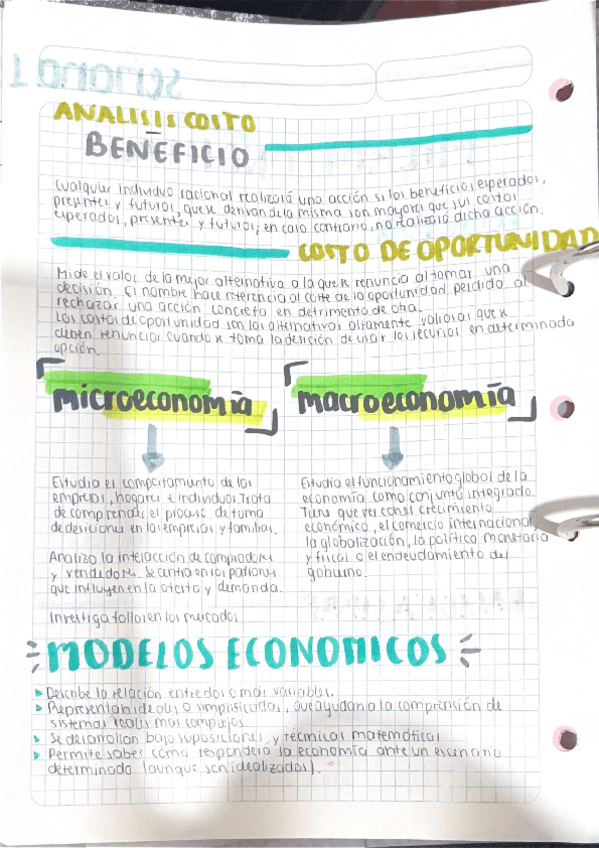 Semana 1
ANALISIS COSTO
BENEFICIO
Cualquier individuo racional realizará una acción si los beneficios esperados,
presentes y futuros, que se derivan de la misma son mayores que sus costos
esperados, presentes y futuros; en caso contrario, no realizará dicha acción.
COSTO DE OPORTUNIDAD
Mide el valor de la mejor alternativa a la que se renuncia al tomar una
decisión. El nombre hace referencia al coste de la oportunidad perdida al
rechazar una acción concreta en detrimento de otra.
Los costos de oportunidad son las alternativas altamente valiosas que se
deben renunciar cuando se toma la desición de usar los recursos en determinada
opción.
microeconomía
macroeconomía
Estudia el comportamiento de las
empresas, hogares e individuos. Trata
de comprender el proceso de toma
de desiciones en las empresas y familias.
Analiza la interacción de compradores
y vendedores. Se centra en los patrones
que influyen en la oferta y demanda.
Investiga fallos en los mercados
Estudia el funcionamiento global de la
economía como conjunto integrado.
Tiene que ver con el crecimiento
económico, el comercio internacional,
la globalización, la política monetaria
y fiscal o el endeudamiento del
gobierno.
MODELOS ECONOMICOS
Describe la relación entre dos o más variables.
Representan ideales o simplificadas, que ayudan a la comprensión de
sistemas reales más complejos.
Se desarrollan bajo suposiciones y técnicas matemáticas
Permite saber cómo responderá la economía ante un escenario
determinado (aunque sean idealizados).